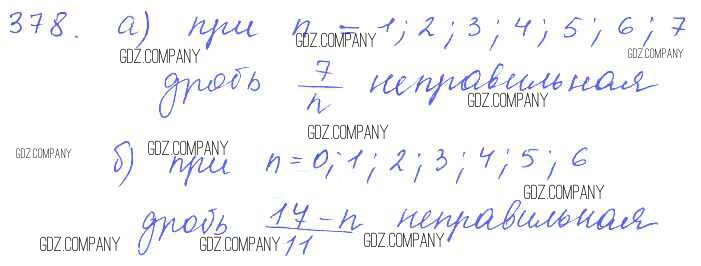 378. а) при n = 1; 2; 3; 4; 5; 6; 7
GDZ.COMPANY GDZ.COMPANY GDZ.COMPANY
дробь 7/n неправильная
GDZ.COMPANY
GDZ.COMPANY
GDZ.COMPANY GDZ.COMPANY
б) при n = 0; 1; 2; 3; 4; 5; 6
GDZ.COMPANY
дробь 17 - n/11 неправильная
GDZ.COMPANY GDZ.COMPANY GDZ.COMPANY